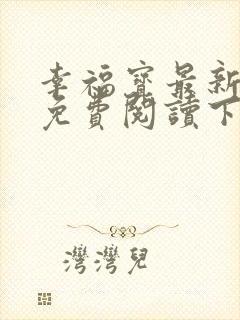 幸福寶最新
免費閱讀下
灣灣兒